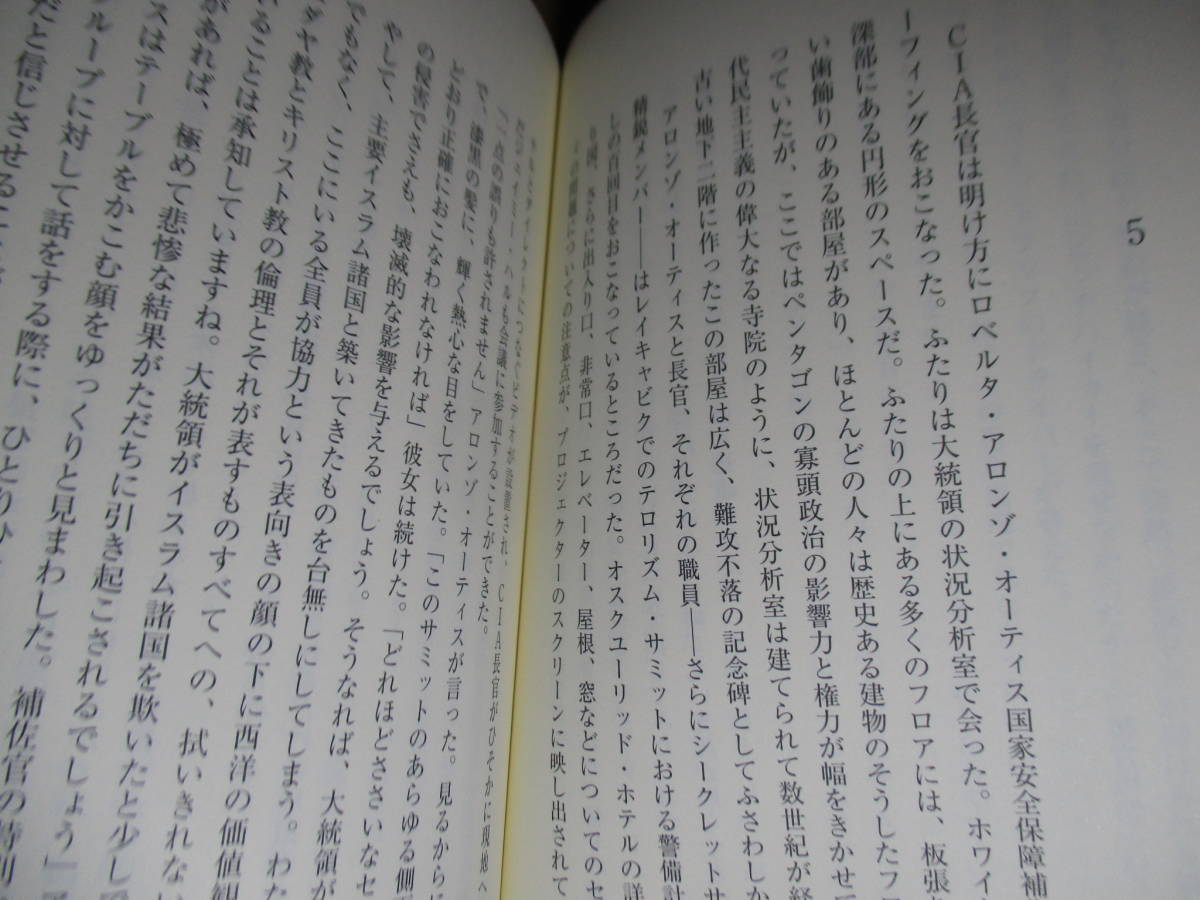 5
CIA長官は明け方にロベルタ・アロンゾ・オーティス国家安全保障補
ーフィングをおこなった。ふたりは大統領の状況分析室で会った。ホワイ
深部にある円形のスペースだ。ふたりの上にある多くのフロアには、板張
い歯飾りのある部屋があり、ほとんどの人々は歴史ある建物のそうしたフ
っていたが、ここではペンタゴンの寡頭政治の影響力と権力が幅をきかせて
代民主主義の偉大なる寺院のように、状況分析室は建てられて数世紀が経
古い地下二階に作ったこの部屋は広く、難攻不落の記念碑としてふさわしか
アロンゾ・オーティスと長官、それぞれの職員――さらにシークレットサ
精鋭メンバー――はレイキャビクでのテロリズム・サミットにおける警備計
しの百回目をおこなっているところだった。オスクユーリッド・ホテルの詳
り図、さらに出入り口、非常口、エレベーター、屋根、窓などについてのセ
の問題についての注意点が、プロジェクターのスクリーンに映し出されて
ビデオが設置され、CIA長官がひそかに現地へ
ジェイミー・ハルも会議に参加することができた。
「一点の誤りも許されません」アロンゾ・オーティスが言った。見るからに
で、漆黒の髪に、輝く熱心な目をしていた。「このサミットのあらゆる側
どおり正確におこなわれなければ」彼女は続けた。「どれほどささいなセ
の侵害でさえも、壊滅的な影響を与えるでしょう。そうなれば、大統領が
やして、主要イスラム諸国と築いてきたものを台無しにしてしまう。わた
でもなく、ここにいる全員が協力という表向きの顔の下に西洋の価値観
ダヤ教とキリスト教の倫理とそれが表すものすべてへの、拭いきれない
いることは承知していますね。大統領がイスラム諸国を欺いたと少し
があれば、極めて悲惨な結果がただちに引き起こされるでしょう」
スはテーブルをかこむ顔をゆっくりと見まわした。補佐官の特別
ループに対して話をする際に、ひとりひ
だと信じさせること